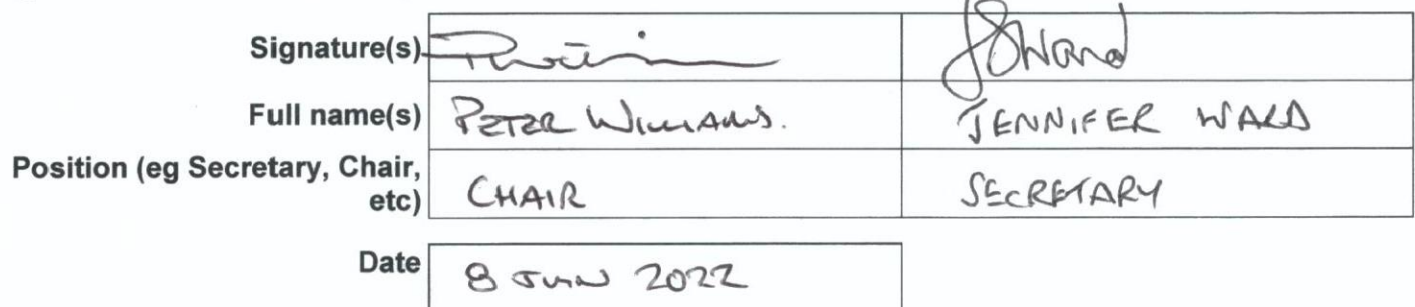 Signature(s)
Full name(s) PETER WILLIAMS. JENNIFER WARD
Position (eg Secretary, Chair,
etc) CHAIR SECRETARY
Date 8 2022